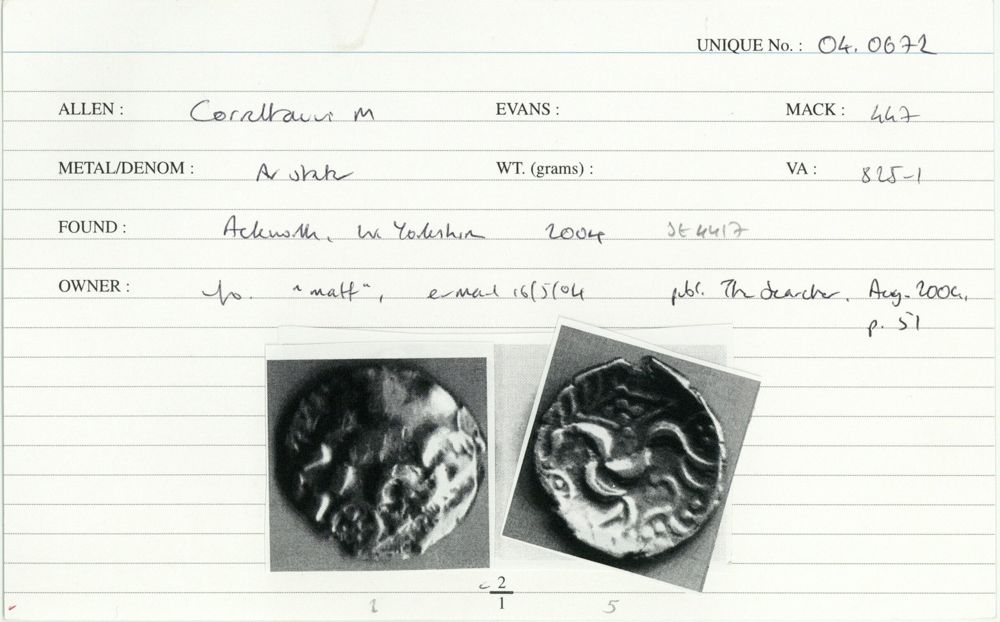 UNIQUE No. : 04.0672
ALLEN : Corieltauvi M EVANS : MACK : 447
METAL/DENOM : AV stater WT. (grams) : VA : 825-1
FOUND : Ackworth, W. Yorkshire 2004 SE 4417
OWNER : "matt", e-mail 16/5/04 publ. The Searcher, Aug. 2004,
p. 51
2
1
1 5